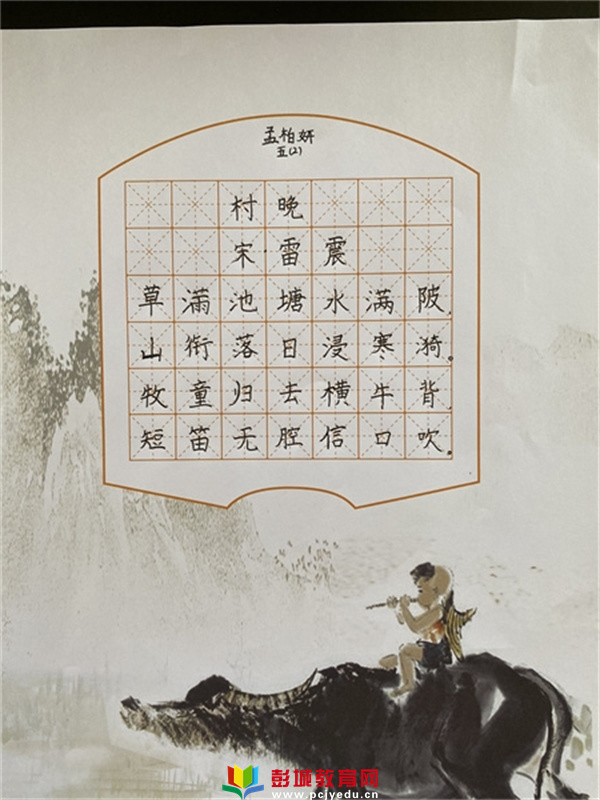 孟柏妍
五(2)
村晚
宋雷震
草满池塘水满陂，
山衔落日浸寒漪。
牧童归去横牛背，
短笛无腔信口吹。
彭城教育网
www.pcjyedu.cn